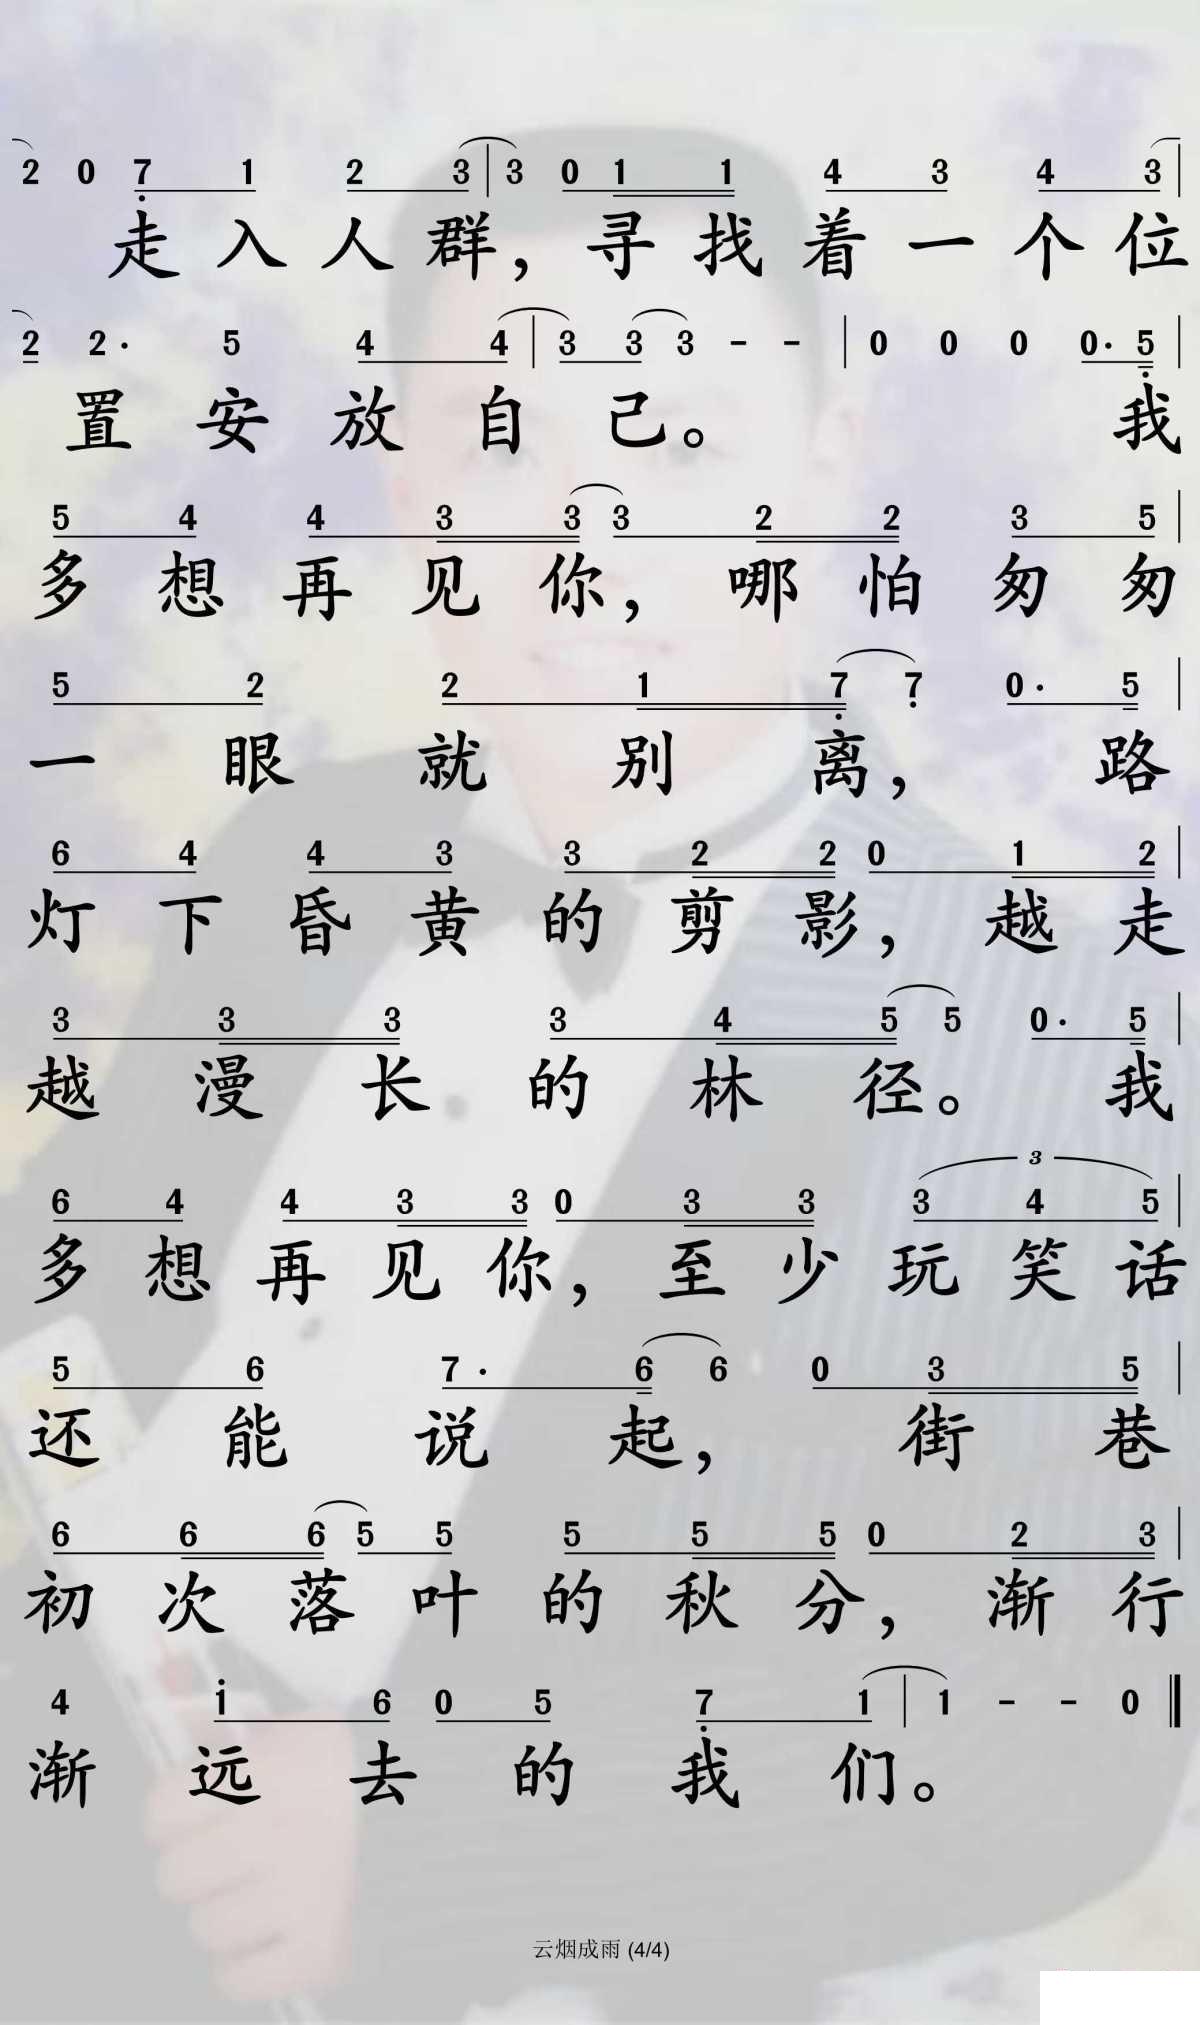 2 0 7 1 2 3 | 3 0 1 1 4 3 4 3 |
走入人群，寻找着一个位
2 2· 5 4 4 | 3 3 3 - - | 0 0 0 0· 5 |
置安放自己。我
5 4 4 3 3 3 2 2 3 5 |
多想再见你，哪怕匆匆
5 2 2 1 7 7 0· 5 |
一眼就别离，路
6 4 4 3 3 2 2 0 1 2 |
灯下昏黄的剪影，越走
3 3 3 3 4 5 5 0· 5 |
越漫长的林径。我
3
6 4 4 3 3 0 3 3 3 4 5 |
多想再见你，至少玩笑话
5 6 7· 6 6 0 3 5 |
还能说起，街巷
6 6 6 5 5 5 5 5 0 2 3 |
初次落叶的秋分，渐行
4 1 6 0 5 7 1 | 1 - - 0 ‖
渐远去的我们。
云烟成雨 (4/4)